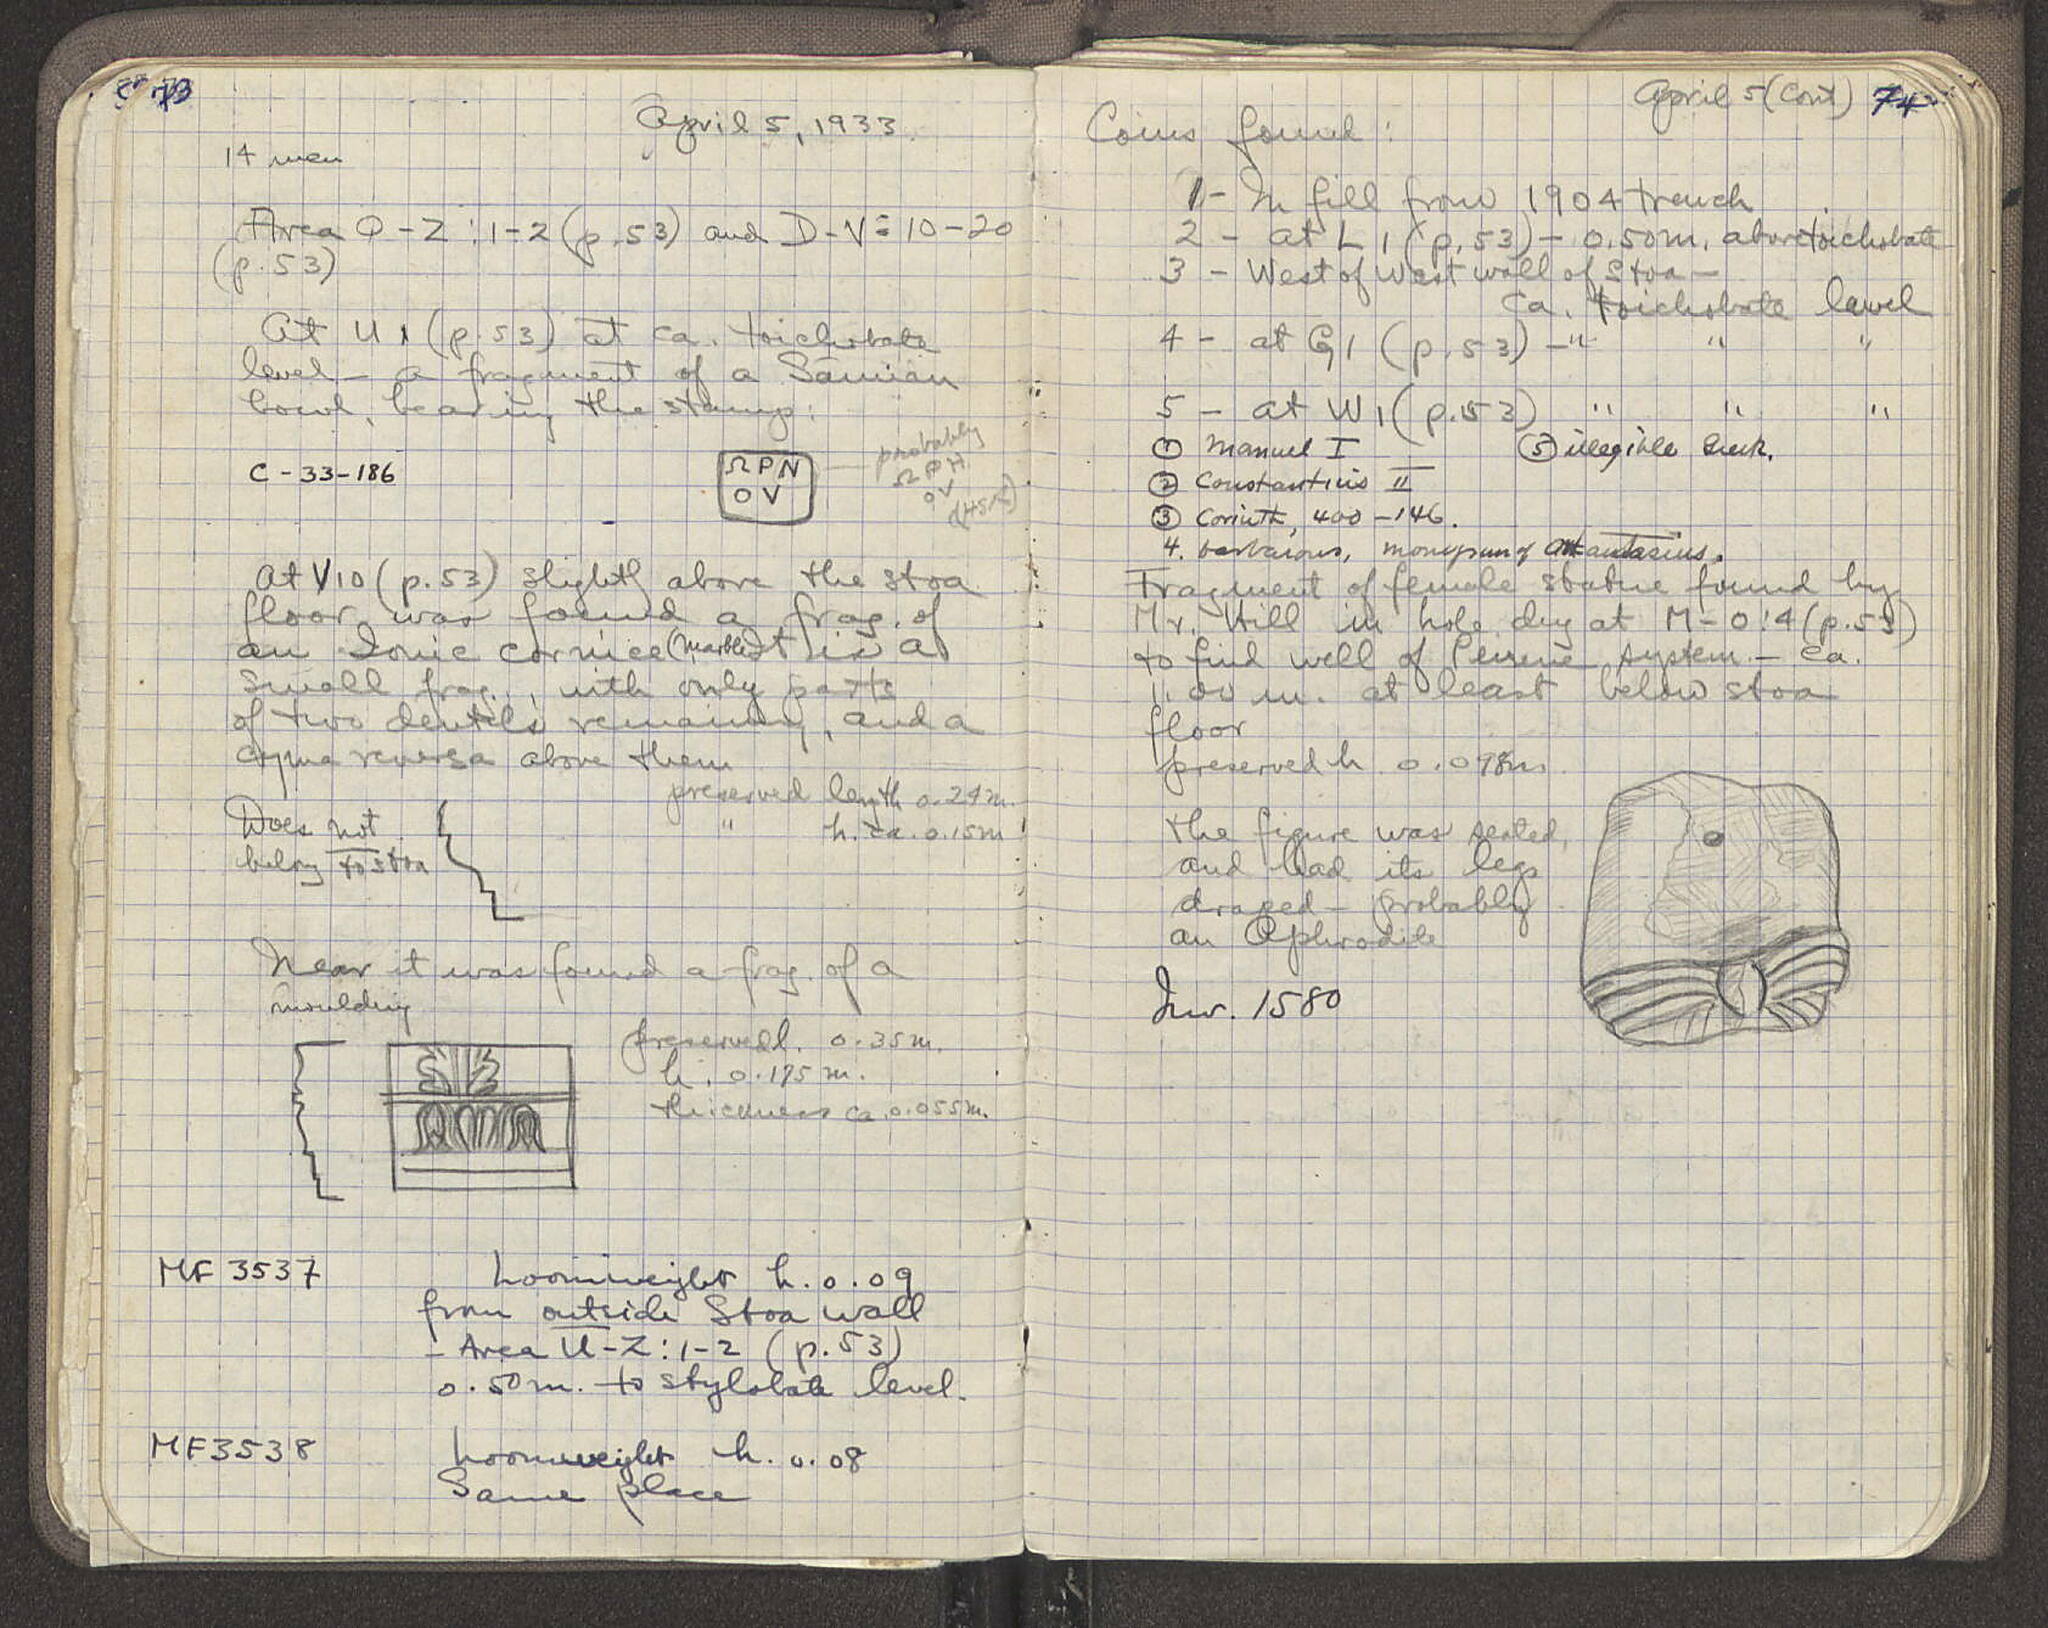 73
April 5, 1933
14 men
Area Q-Z:1-2 (p.53) and D-V:10-20
(p.53)
At U1 (p.53) at ca. toichobate
level - a fragment of a Samian
bowl, bearing the stamp:
C-33-186
ΩPN
OV
probably
ΩPH
OV
At V10 (p.53) slightly above the stoa
floor was found a frag. of
an Ionic cornice (marble) It is a
small frag., with only parts
of two dentels remaining, and a
cyma reversa above them
preserved length 0.24 m.
" h. ca. 0.15m
Does not
belong to stoa
Near it was found a frag. of a
moulding
preserved l. 0.35m.
h. 0.175 m.
thickness ca. 0.055m.
MF 3537
Loomweight h. 0.09
from outside Stoa wall
- Area U-Z:1-2 (p.53)
0.50m. to stylobate level.
MF3538
Loomweight h. 0.08
Same place
April 5 (Cont) 74
Coins found:
1- In fill from 1904 trench
2 - at L1 (p.53) - 0.50m. above toichobate
3 - West of West wall of Stoa -
ca. toichobate level
4 - at G1 (p.53) - " " "
5 - at W1 (p.53) " " "
① Manuel I ⑤ illegible Greek.
② Constantius II
③ Corinth, 400-146.
4. barbarous, monogram of Anastasius.
Fragment of female statue found by
Mr. Hill in hole dug at M-O:4 (p.53)
to find well of Peirene system - ca.
11.00 m. at least below stoa
floor
preserved h 0.098m
The figure was seated,
and had its legs
draped - probably
an Aphrodite
Inv. 1580